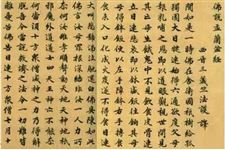 佛說盂蘭盆經
西晉三藏法師譯
聞如是一時佛在舍衛國祇樹給孤
獨園大目揵連始得六通欲度父母
報乳哺之恩即以道眼觀視世間見
其亡母生餓鬼中不見飲食皮骨連
立目連悲哀即鉢盛飯往餉其母母
得鉢飯便以左手障飯右手摶飯食
未入口化成火炭遂不得食目連大叫
悲號啼泣馳還白佛具陳如此
佛言汝母罪根深結非汝一人力所
奈何汝雖孝順聲動天地天神地祇
邪魔外道道士四天王神亦不能奈
何當須十方衆僧威神之力乃得解
脫吾今當說救濟之法令一切難皆
離憂苦佛告目連十方衆僧七月